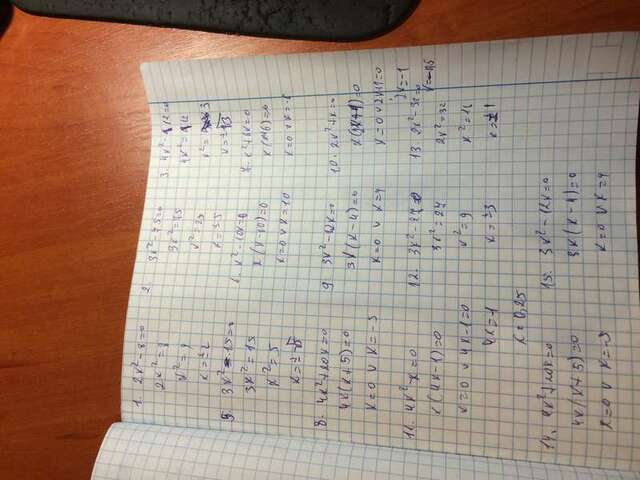 1. 2x²-8=0
2x²=8
x²=4
x=±2
2. 3x²-75=0
3x²=75
x²=25
x=±5
3. 4x²-12=0
4x²=12
x²=3
x=±√3
5. 3x²-15=0
3x²=15
x²=5
x=±√5
6. x²-10x=0
x(x-10)=0
x=0 ∨ x=10
7. x²+6x=0
x(x+6)=0
x=0 ∨ x=-6
8. 4x²+20x=0
4x(x+5)=0
x=0 ∨ x=-5
9. 3x²-12x=0
3x(x-4)=0
x=0 ∨ x=4
10. 2x²+x=0
x(2x+1)=0
x=0 ∨ 2x+1=0
2x=-1
x=-0,5
11. 4x²-x=0
x(4x-1)=0
x=0 ∨ 4x-1=0
4x=-1
x=0,25
12. 3x²-27=0
3x²=27
x²=9
x=±3
13. 2x²-32=0
2x²=32
x²=16
14. 4x²+20x=0
4x(x+5)=0
x=0 ∨ x=-5
15. 3x²-12x=0
3x(x-4)=0
x=0 ∨ x=4